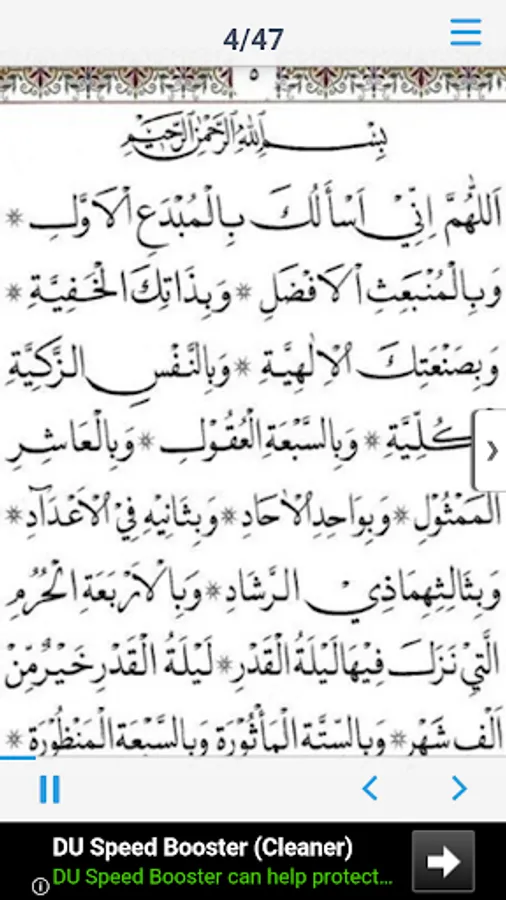 4/47
٥
بِسْمِ اللهِ الرَّحْمٰنِ الرَّحِيْمِ
اَللّٰهُمَّ اِنِّيْ اَسْأَلُكَ بِالْمُبْدَعِ الْاَوَّلِ *
وَبِالْمُنْبَعِثِ الْاَفْضَلِ * وَبِذَاتِكَ الْخَفِيَّةِ *
وَبِصَنْعَتِكَ الْاِلٰهِيَّةِ * وَبِالنَّفْسِ الزَّكِيَّةِ
كُلِّيَّةِ * وَبِالسَّبْعَةِ الْعُقُوْلِ * وَبِالْعَاشِرِ
الْمَمْثُوْلِ * وَبِوَاحِدِ الْاٰحَادِ * وَبِثَانِيْهِ فِيْ الْاَعْدَادِ *
وَبِثَالِثِهِمَا ذِيْ الرَّشَادِ * وَبِالْاَرْبَعَةِ الْحُرُمِ
الَّتِيْ نَزَلَ فِيْهَا لَيْلَةُ الْقَدْرِ * لَيْلَةُ الْقَدْرِ خَيْرٌ مِّنْ
اَلْفِ شَهْرٍ * وَبِالسِّتَّةِ الْمَأْثُوْرَةِ وَبِالسَّبْعَةِ الْمَنْظُوْرَةِ *
DU Speed Booster (Cleaner)
DU Speed Booster can help protect...